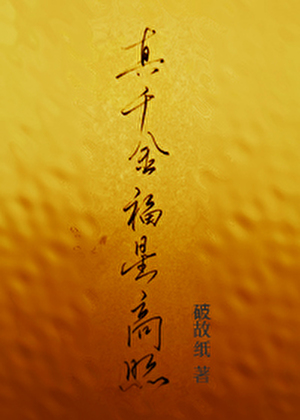 真千金福星高照
破故纸 著